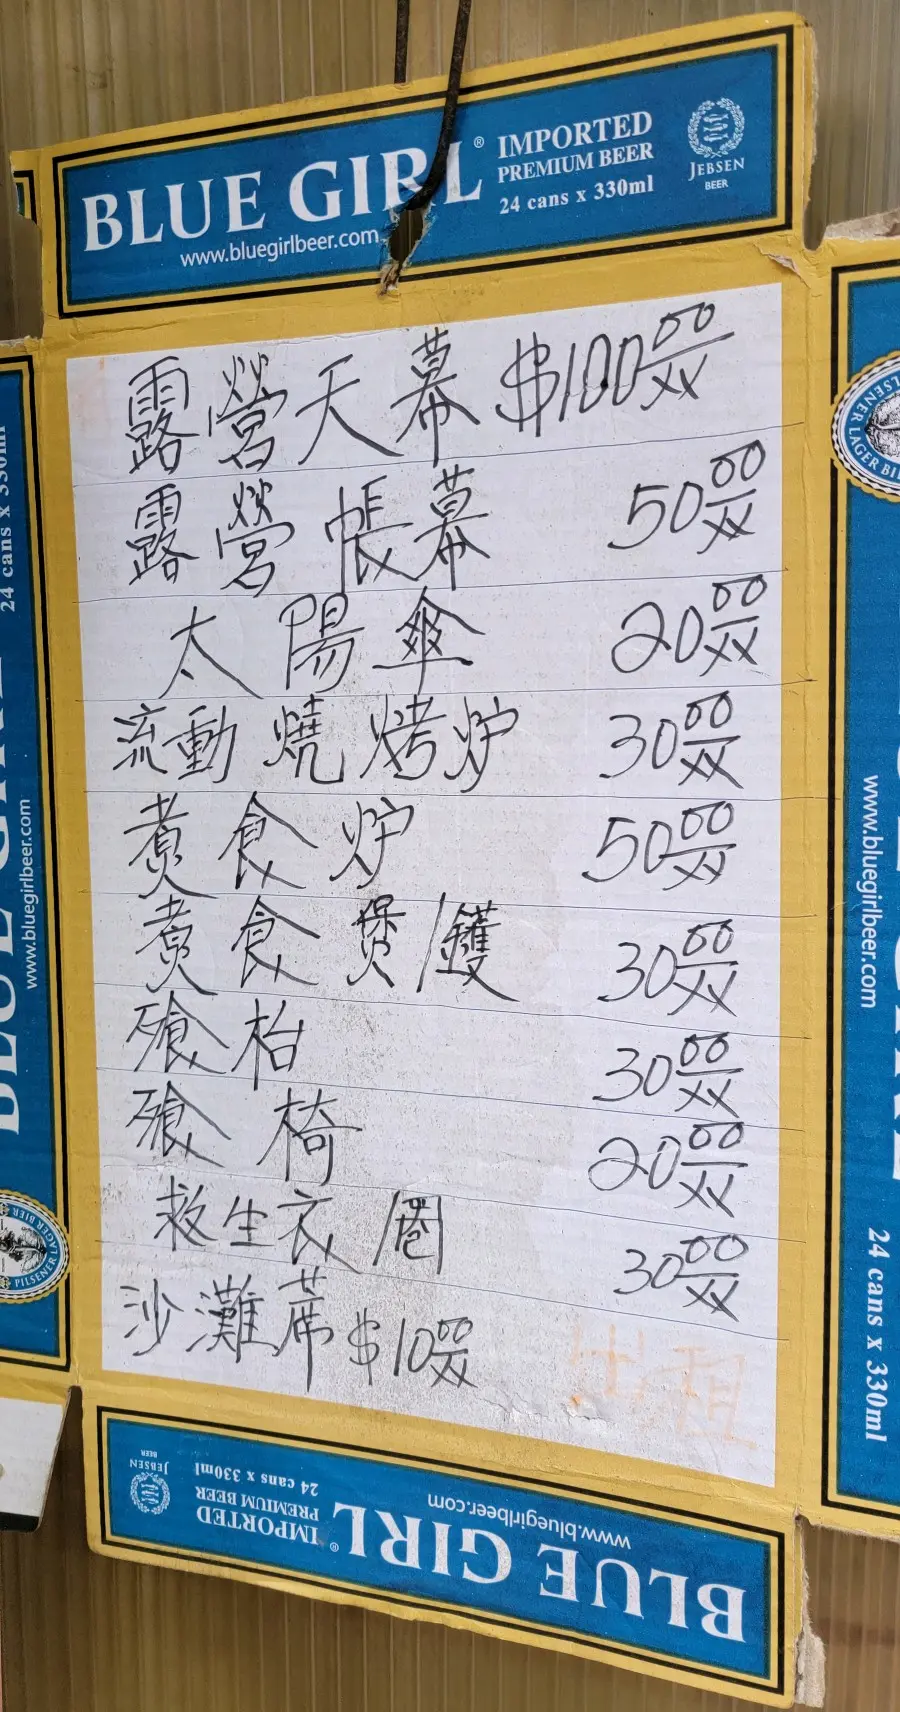 BLUE GIRL®
IMPORTED
PREMIUM BEER
24 cans x 330ml
JEBSEN
BEER
www.bluegirlbeer.com
露營天幕 $100 00/xx
露營帳幕 50 00/xx
太陽傘 20 00/xx
流動燒烤炉 30 00/xx
煑食炉 50 00/xx
煑食煲/鑊 30 00/xx
飱枱 30 00/xx
飱椅 20 00/xx
救生衣/圈 30 00/xx
沙灘蓆 $10 00/xx
出租
24 cans x 330ml
www.bluegirlbeer.com
PILSENER LAGER BIER
PILSENER LAGER BIE
www.bluegirlbeer.com
24 cans x 330ml
BLUE GIRL®
IMPORTED
PREMIUM BEER
24 cans x 330ml
JEBSEN
BEER
www.bluegirlbeer.com